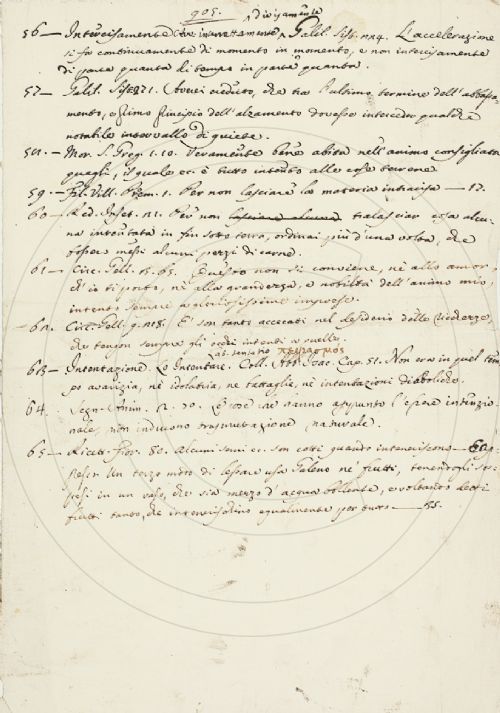 905.
divisamente
56 — Intercisamente Galil. Sist. 224. L'accelerazione
si fa continuamente di momento in momento, e non intercisamente
di parte quanta di tempo in parte quanta.
57 — Galil. Sist. 271. creduto, che tra l'ultimo termine dell'abbassa-
mento, e primo principio dell'alzamento dovesse interceder qualche
notabile intervallo di quiete.
58. — Mor. S. Greg. 1. 10. Veramente bene abita nell'animo consigliato
quegli, il quale ec. è tutto intento alle cose terrene.
59. — Fil. Vill. 1. Per non lasciare la materia intracisa — 17.
60 — Red. Inset. Per non tralasciar cosa alcu-
na intentata in fin sotto terra, ordinai più d'una volta, che
fossero messi alcuni pezzi di carne.
61 — Circ. Gell. 65. Questo non si conviene, nè allo amor,
ch'io ti porto, nè alla grandezza, e nobiltà dell'animo mio,
intento sempre a gloriosissime imprese.
62. Circ. Gell. E' son tanto accecati nel desiderio delle ricchezze,
che tengon sempre gli occhi intenti a quelle.
63 — Intentazione. Lo Intentare. Coll. Ab. Isac. Cap. 51. Non era in quel tem-
po avarizia, nè idolatria, nè battaglie, nè intentazioni diaboliche.
64. Segn. Anim. hanno appunto l'essere intenzio-
nale, non inducono trasmutazione naturale.
65 — Ricett. Fior. 80. Alcuni semi ec. son cotti quando inteneriscono — 60.
Un terzo modo di lessare usa Galeno ne' frutti, tenendogli sos-
pesi in un vaso, che sia mezzo d'acqua bollente, e voltando detti
frutti tanto, che intenerischino egualmente per tutto — 55.